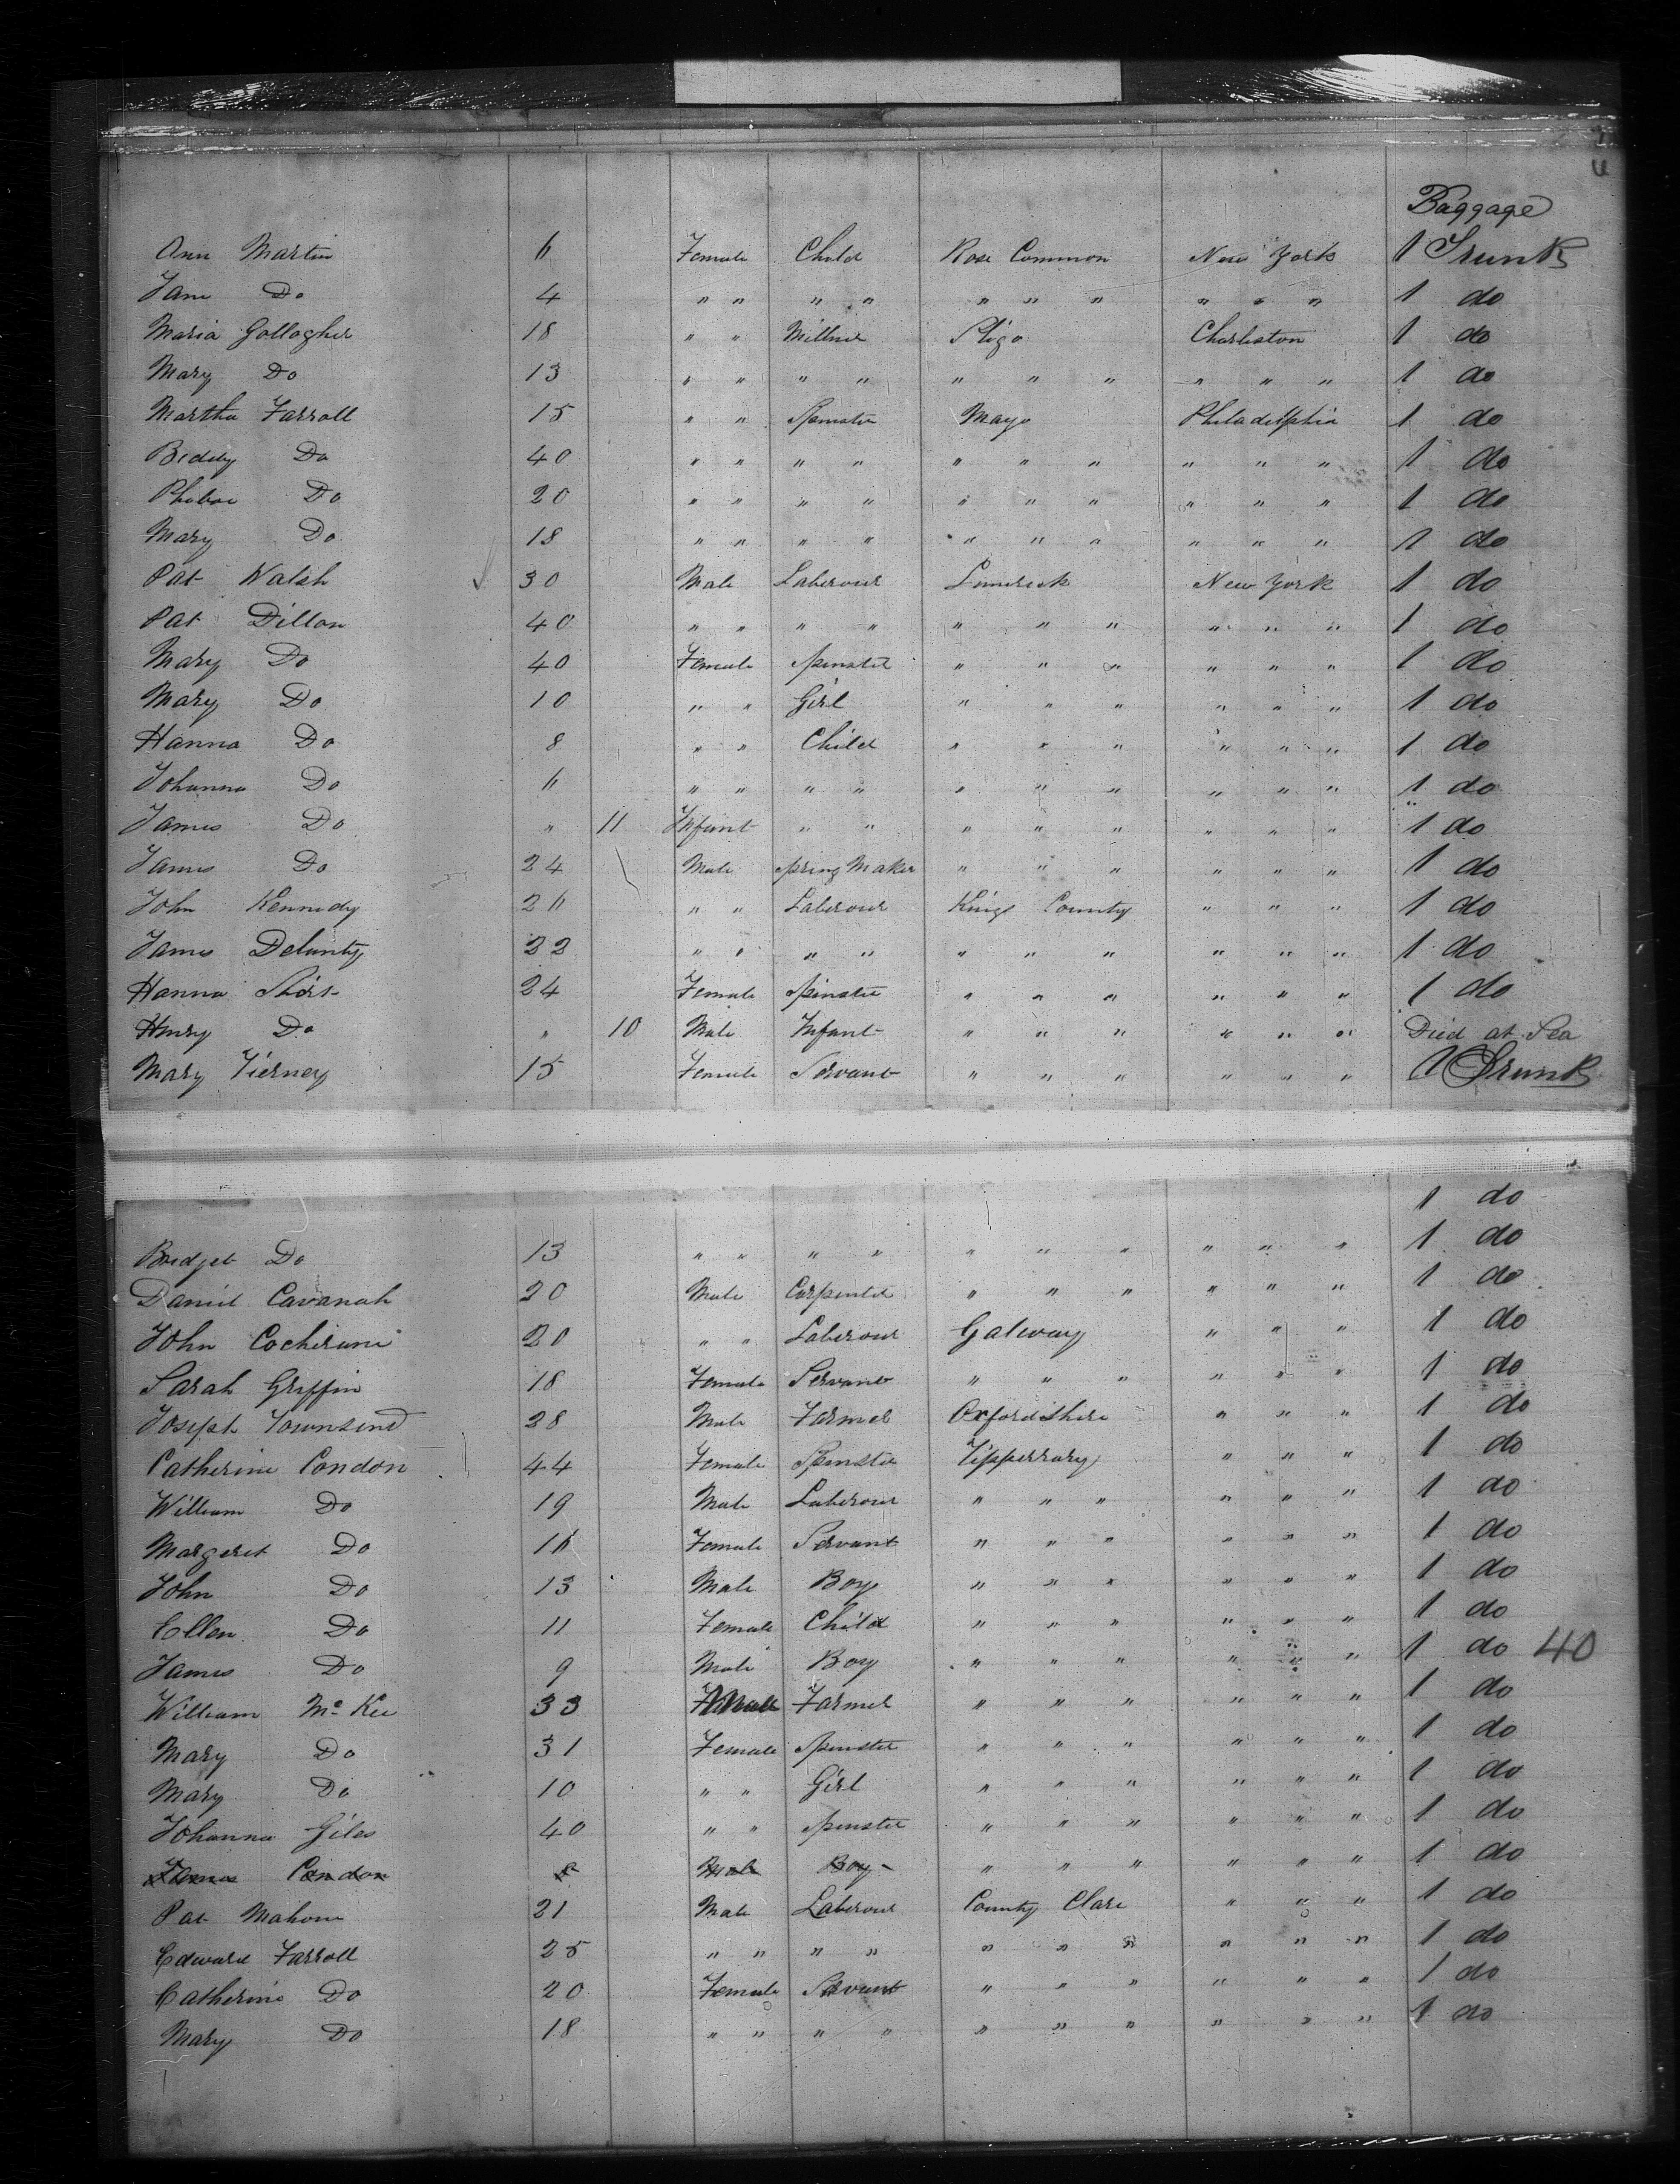 Baggage
Ann Martin 6 Female Child Rose Common New York 1 Trunk
Jane Do 4 " " " " " " " " " " 1 do
Maria Gollagher 18 " " Millner Sligo Charleston 1 do
Mary Do 13 " " " " " " " " " " 1 do
Martha Farroll 15 " " Spinster Mayo Philadelphia 1 do
Biddy Do 40 " " " " " " " " " " 1 do
Phiboe Do 20 " " " " " " " " " " 1 do
Mary Do 18 " " " " " " " " " " 1 do
Pat Walsh 30 Male Laberour Limerick New York 1 do
Pat Dillon 40 " " " " " " " " " " 1 do
Mary Do 40 Female Spinster " " " " " " 1 do
Mary Do 10 " " Girl " " " " " " 1 do
Hanna Do 8 " " Child " " " " " " 1 do
Johanna Do 6 " " " " " " " " " " 1 do
James Do " 11 Infant " " " " " " " " 1 do
James Do 24 Male Spring Maker " " " " " " 1 do
John Kennedy 26 " " Laberour Kings County " " " 1 do
James Delunty 22 " " " " " " " " " " 1 do
Hanna Short 24 Female Spinster " " " " " " 1 do
Henry Do " 10 Male Infant " " " " " " Died at Sea
Mary Tierney 15 Female Servant " " " " " " 1 Trunk
1 do
Bridget Do 13 " " " " " " " " " " 1 do
Daniel Cavanah 20 Male Carpenter " " " " " " 1 do
John Cocherane 20 " " Laberour Galway " " " 1 do
Sarah Griffin 18 Female Servant " " " " " " 1 do
Joseph Townsend 28 Male Farmer Oxfordshire " " " 1 do
Catherine Condon 44 Female Spinster Tipperrary " " " 1 do
William Do 19 Male Laberour " " " " " " 1 do
Margeret Do 16 Female Servant " " " " " " 1 do
John Do 13 Male Boy " " " " " " 1 do
Ellen Do 11 Female Child " " " " " " 1 do
James Do 9 Male Boy " " " " " " 1 do 40
William Mc Kee 33 Male Farmer " " " " " " 1 do
Mary Do 31 Female Spinster " " " " " " 1 do
Mary Do 10 " " Girl " " " " " " 1 do
Johanna Giles 40 " " Spinster " " " " " " 1 do
James Condon Male Boy " " " " " " 1 do
Pat Mahone 21 Male Laberour County Clare " " " 1 do
Edward Farroll 25 " " " " " " " " " " 1 do
Catherine Do 20 Female Servant " " " " " " 1 do
Mary Do 18 " " " " " " " " " " 1 do